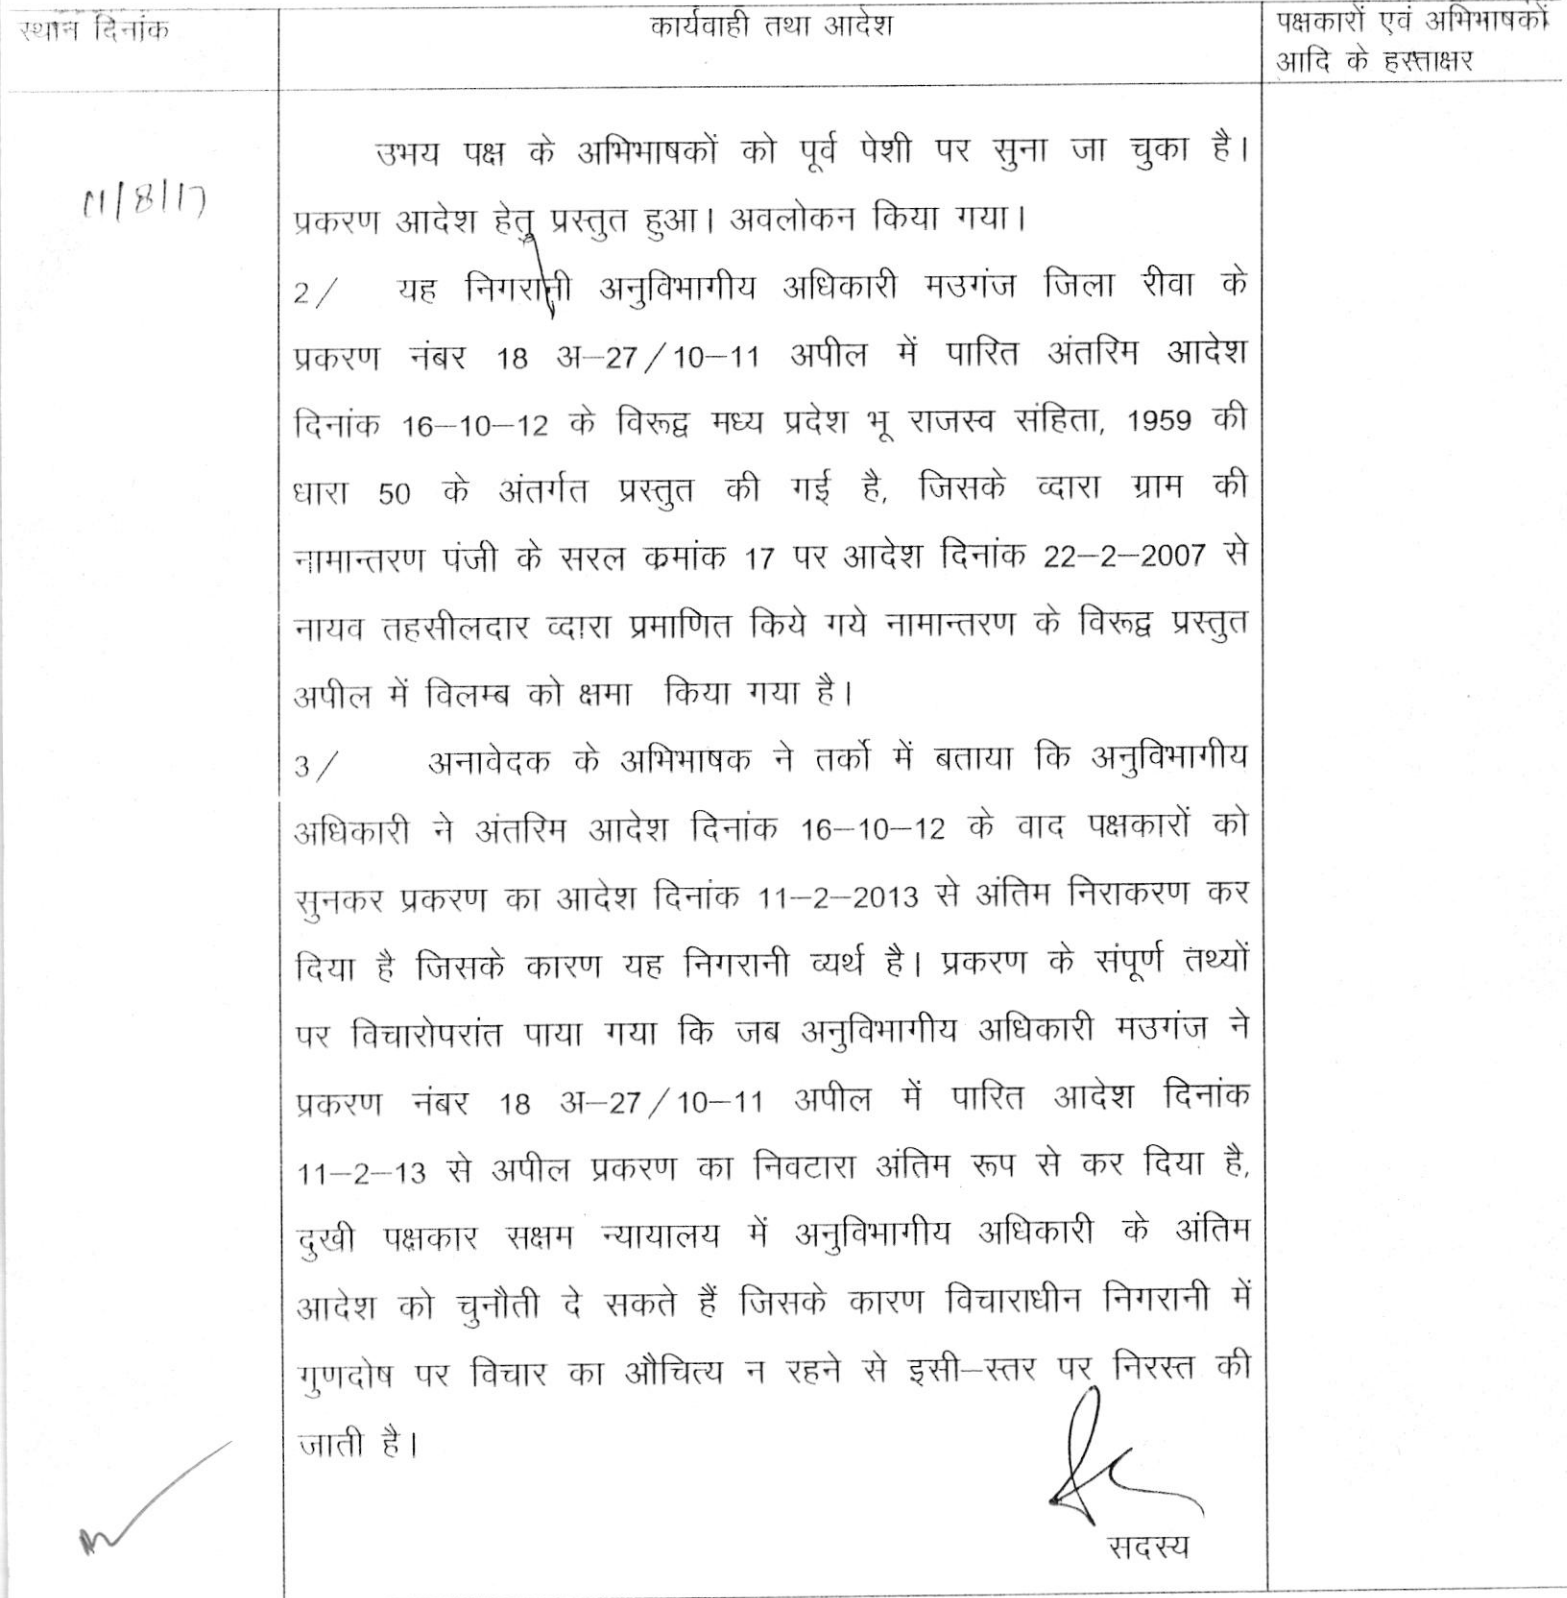 स्थान दिनांक
कार्यवाही तथा आदेश
पक्षकारों एवं अभिभाषकों
आदि के हस्ताक्षर
11/8/17
उभय पक्ष के अभिभाषकों को पूर्व पेशी पर सुना जा चुका है।
प्रकरण आदेश हेतु प्रस्तुत हुआ। अवलोकन किया गया।
2/ यह निगरानी अनुविभागीय अधिकारी मउगंज जिला रीवा के
प्रकरण नंबर 18 अ–27/10–11 अपील में पारित अंतरिम आदेश
दिनांक 16–10–12 के विरूद्व मध्य प्रदेश भू राजस्व संहिता, 1959 की
धारा 50 के अंतर्गत प्रस्तुत की गई है, जिसके व्दारा ग्राम की
नामान्तरण पंजी के सरल कमांक 17 पर आदेश दिनांक 22–2–2007 से
नायव तहसीलदार व्दारा प्रमाणित किये गये नामान्तरण के विरूद्व प्रस्तुत
अपील में विलम्ब को क्षमा किया गया है।
3/ अनावेदक के अभिभाषक ने तर्को में बताया कि अनुविभागीय
अधिकारी ने अंतरिम आदेश दिनांक 16–10–12 के वाद पक्षकारों को
सुनकर प्रकरण का आदेश दिनांक 11–2–2013 से अंतिम निराकरण कर
दिया है जिसके कारण यह निगरानी व्यर्थ है। प्रकरण के संपूर्ण तथ्यों
पर विचारोपरांत पाया गया कि जब अनुविभागीय अधिकारी मउगंज ने
प्रकरण नंबर 18 अ–27/10–11 अपील में पारित आदेश दिनांक
11–2–13 से अपील प्रकरण का निवटारा अंतिम रूप से कर दिया है,
दुखी पक्षकार सक्षम न्यायालय में अनुविभागीय अधिकारी के अंतिम
आदेश को चुनौती दे सकते हैं जिसके कारण विचाराधीन निगरानी में
गुणदोष पर विचार का औचित्य न रहने से इसी–स्तर पर निरस्त की
जाती है।
सदस्य